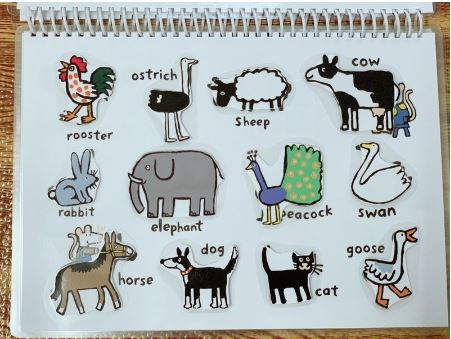 rooster
ostrich
Sheep
cow
rabbit
elephant
peacock
swan
horse
dog
cat
goose